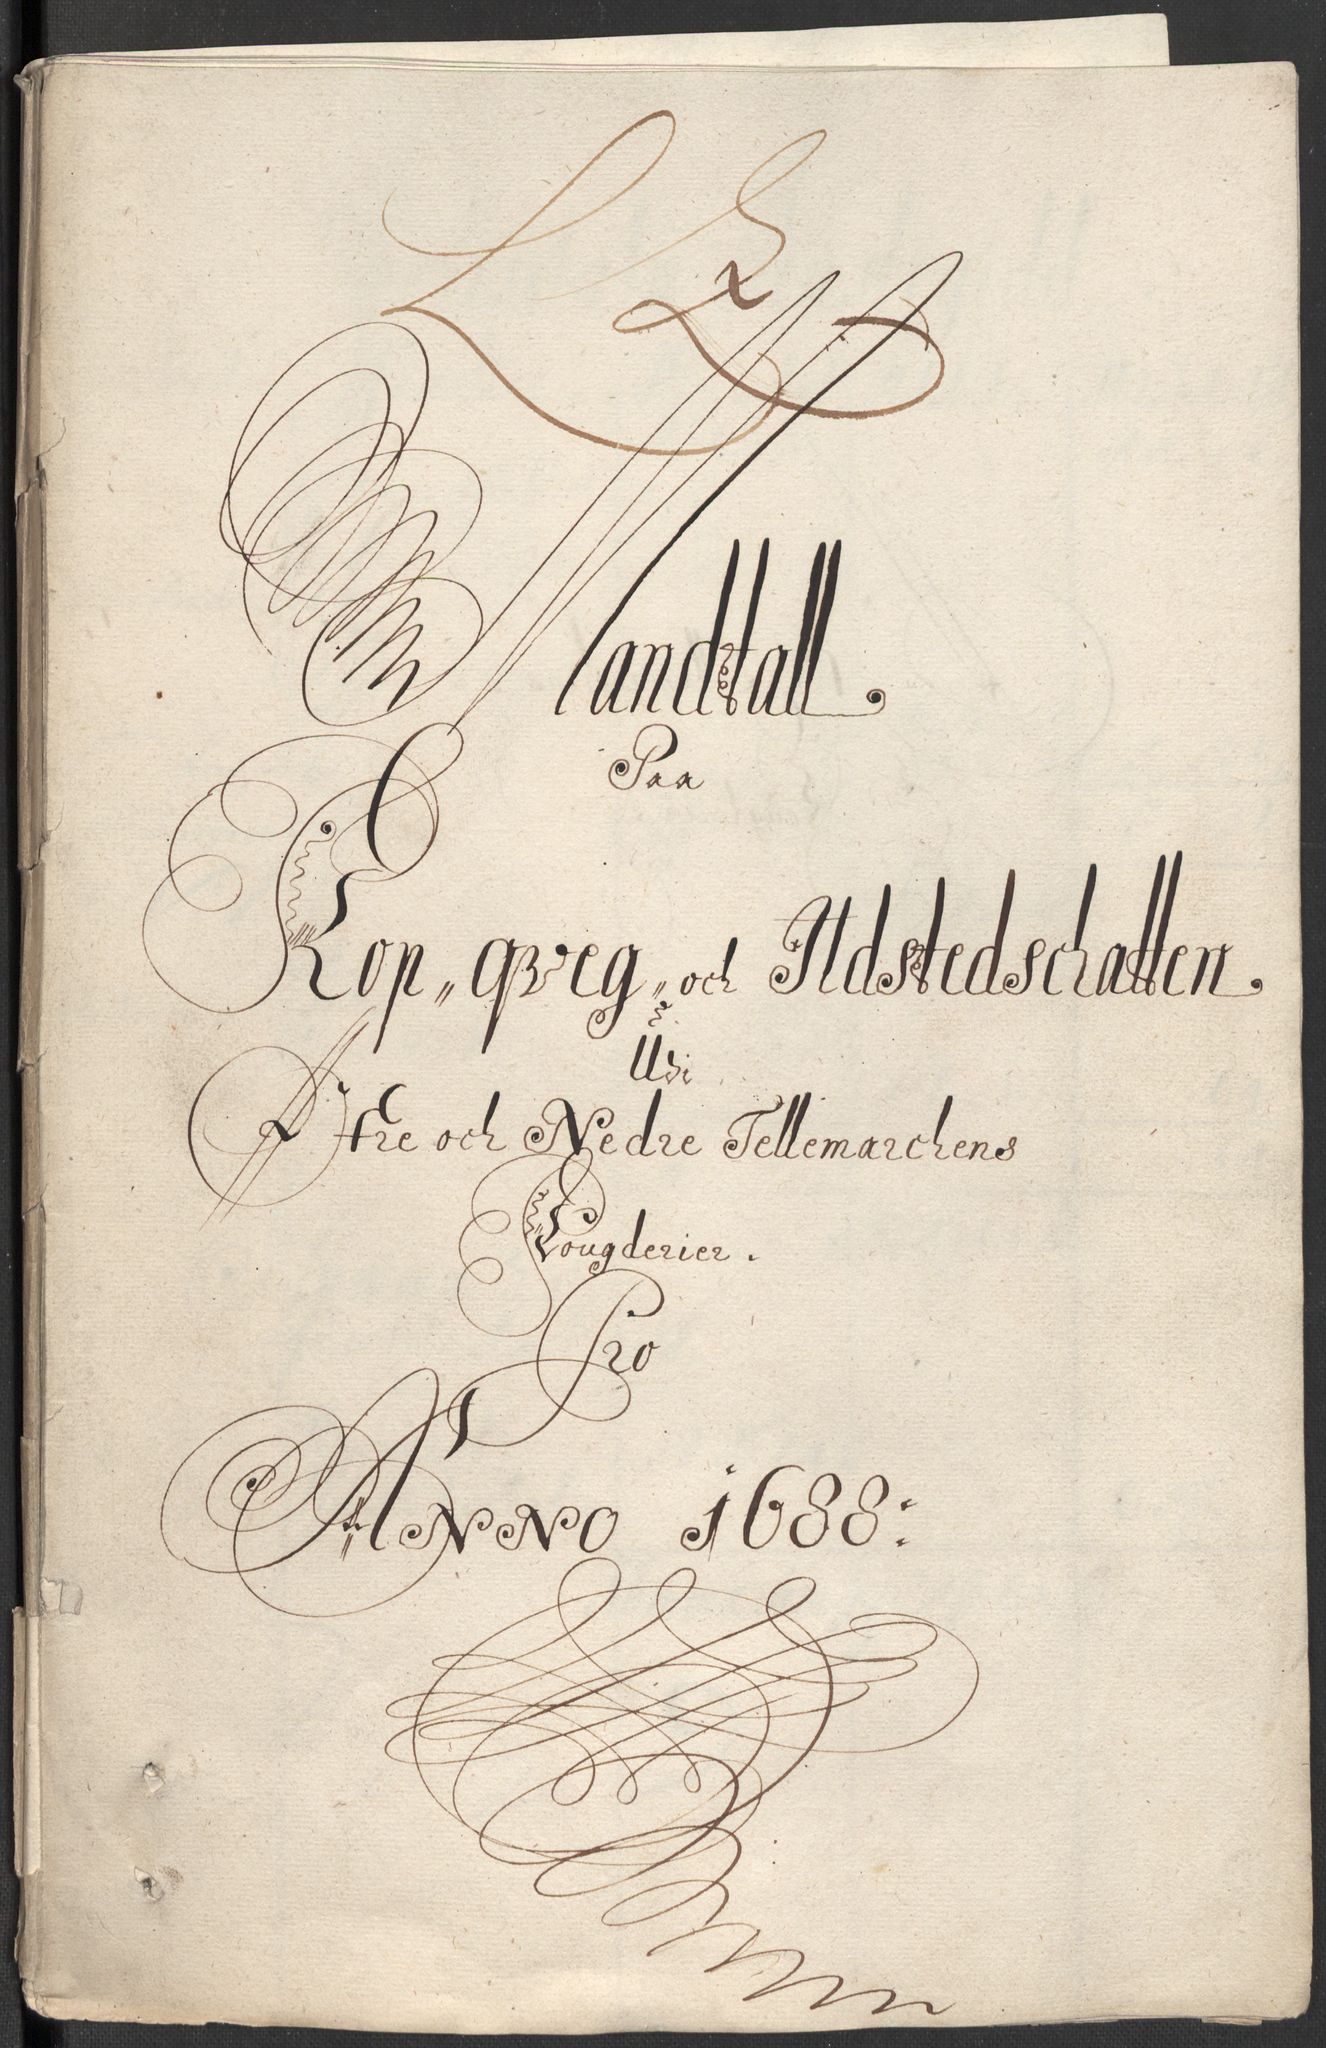 Mandtall.
Paa
Kop„ qveg„ och Ildstedschatten.
Udi
Øfre och Nedre Tellemarchens
Fougderier.
Pro
ANNO 1688: